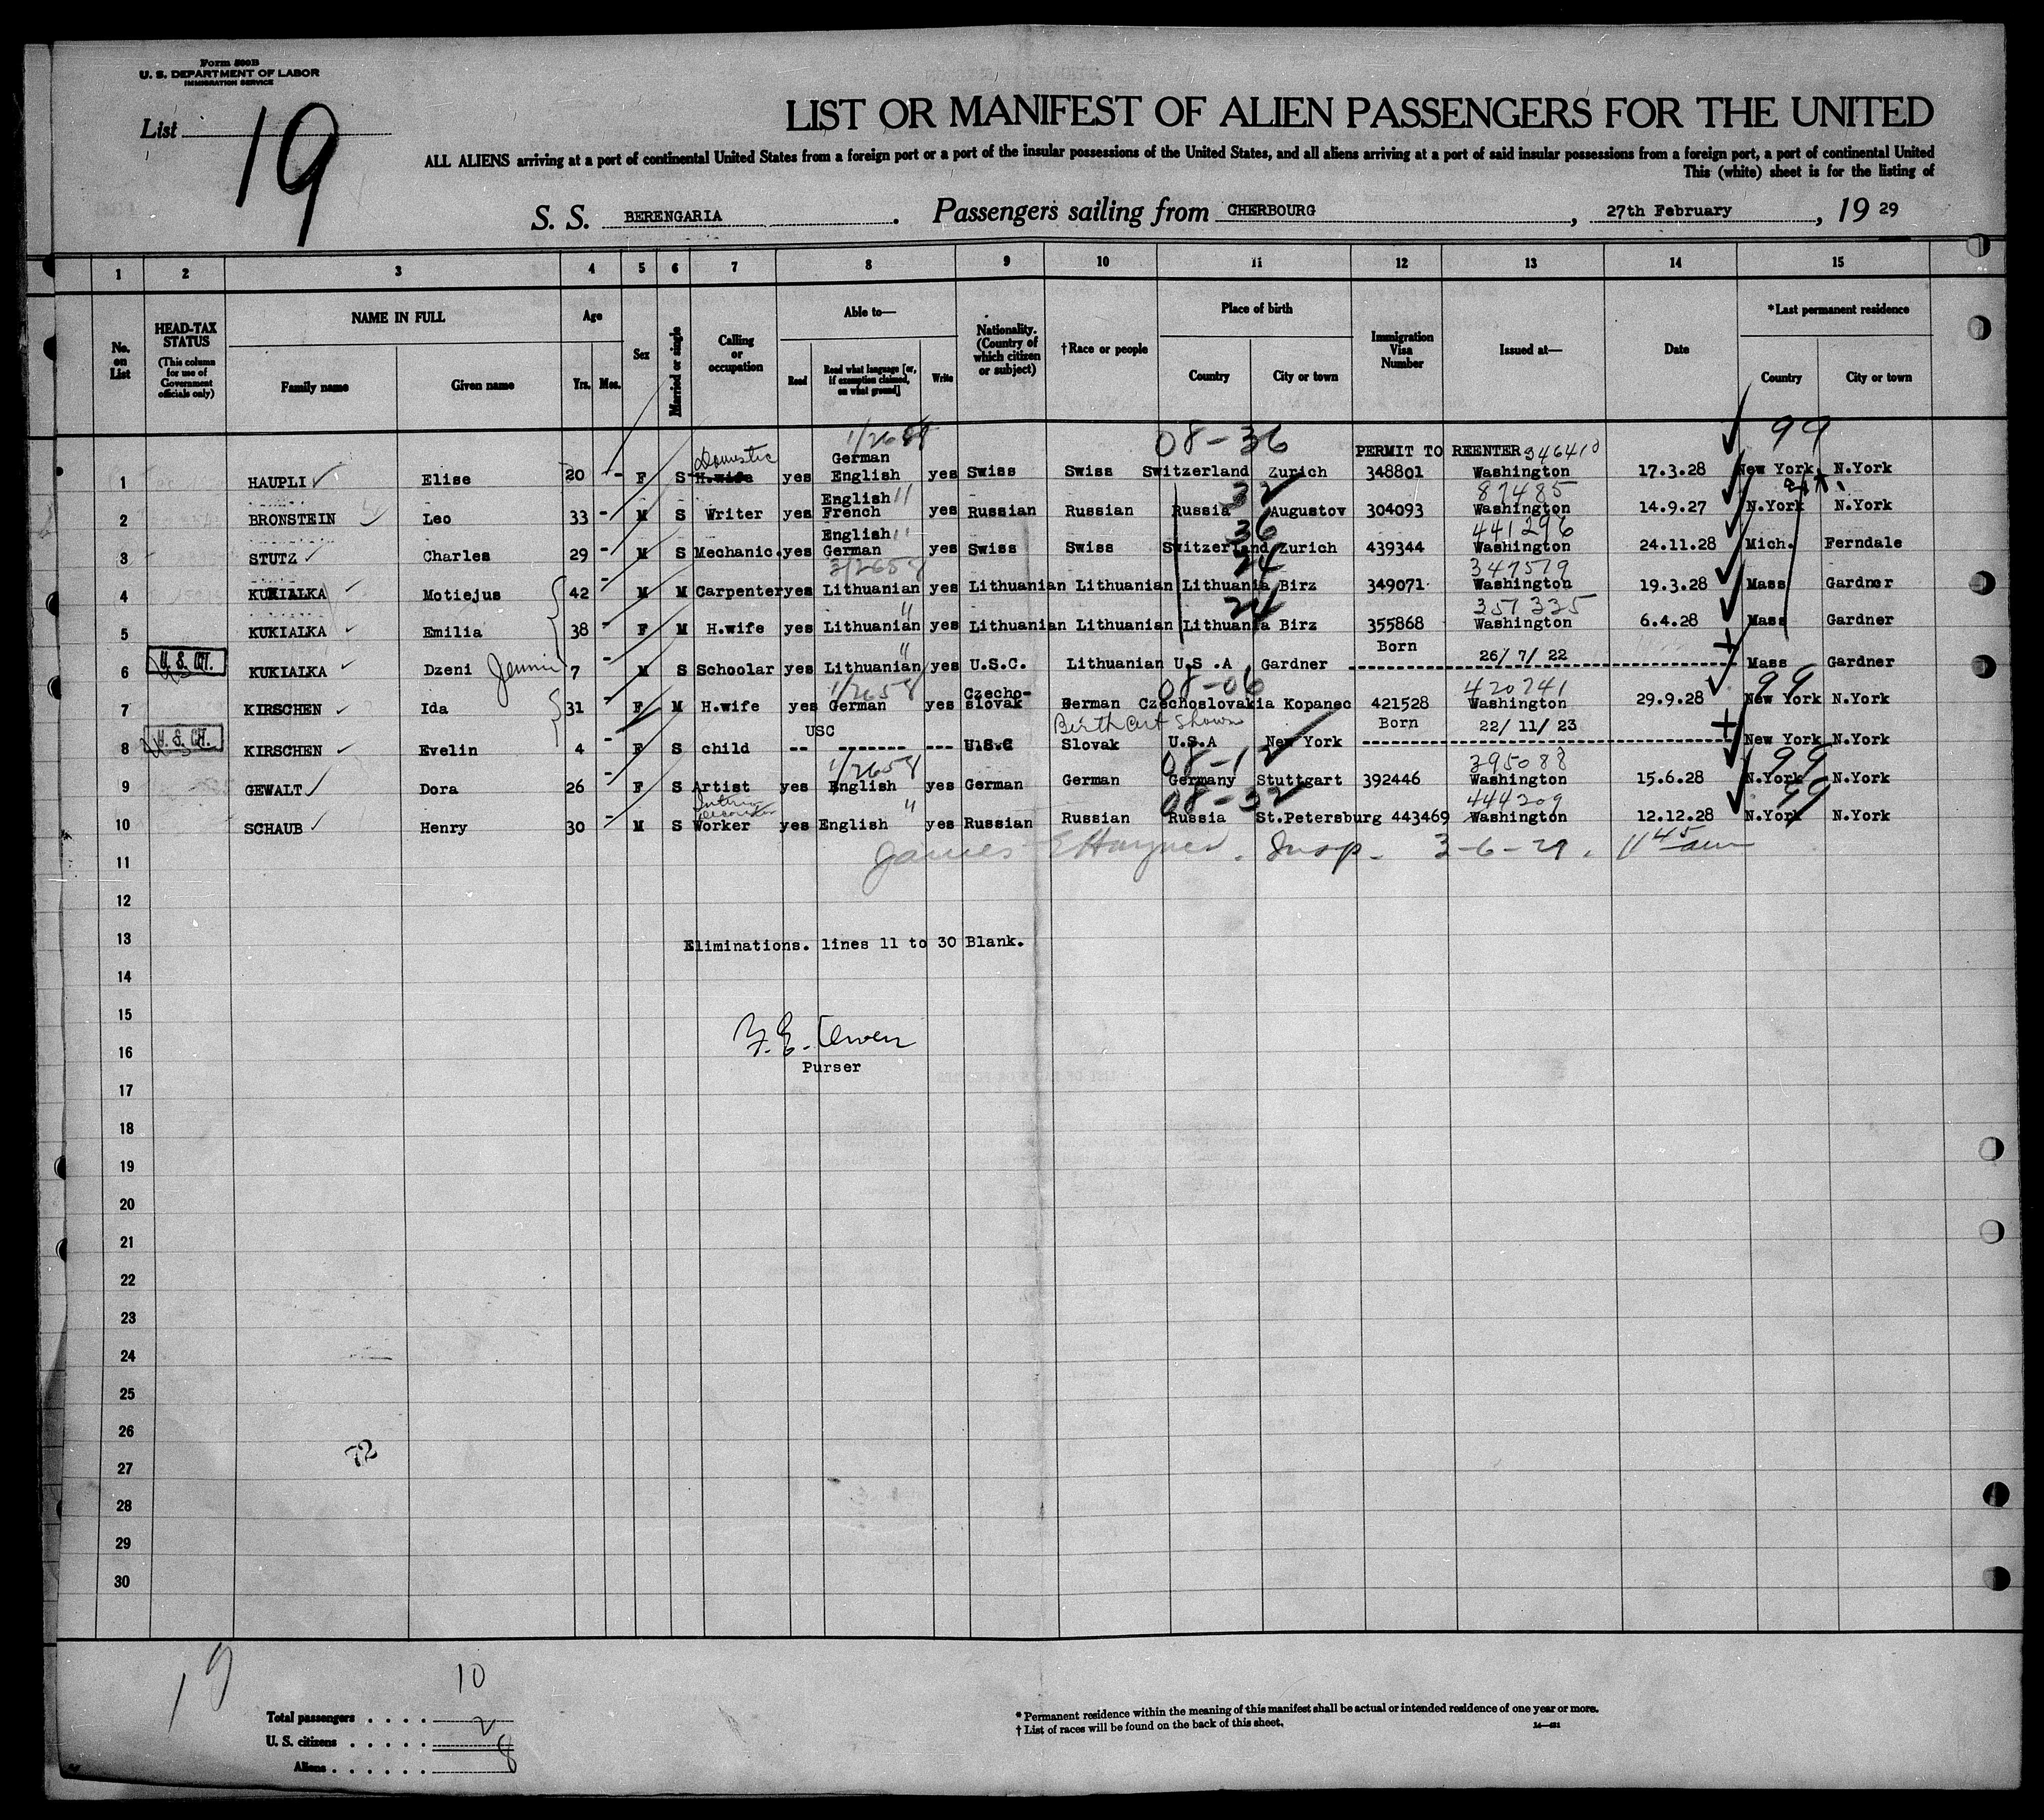 Form 500B
U. S. DEPARTMENT OF LABOR
IMMIGRATION SERVICE
List 19
LIST OR MANIFEST OF ALIEN PASSENGERS FOR THE UNITED
ALL ALIENS arriving at a port of continental United States from a foreign port or a port of the insular possessions of the United States, and all aliens arriving at a port of said insular possessions from a foreign port, a port of continental United
This (white) sheet is for the listing of
S. S. BERENGARIA. Passengers sailing from CHERBOURG, 27th February, 19 29
1 2 3 4 5 6 7 8 9 10 11 12 13 14 15
No. on List
HEAD-TAX STATUS (This column for use of Government officials only)
NAME IN FULL Family name Given name
Age Yrs. Mos.
Sex
Married or single
Calling or occupation
Able to— Read Read what language [or, if exemption claimed, on what ground] Write
Nationality. (Country of which citizen or subject)
†Race or people
Place of birth Country City or town
Immigration Visa Number
Issued at—
Date
*Last permanent residence Country City or town
1/2658 08-36 99
Domestic German PERMIT TO REENTER 346410
1 HAUPLI Elise 20 - F S H.wife yes English yes Swiss Swiss Switzerland Zurich 348801 Washington 17.3.28 New York N.York
English " 32 87485
2 BRONSTEIN Leo 33 - M S Writer yes French yes Russian Russian Russia Augustov 304093 Washington 14.9.27 N.York N.York
English " 36 441296
3 STUTZ Charles 29 - M S Mechanic. yes German yes Swiss Swiss Switzerland Zurich 439344 Washington 24.11.28 Mich. Ferndale
3/2658 24 347579
4 KUKIALKA Motiejus 42 - M M Carpenter yes Lithuanian yes Lithuanian Lithuanian Lithuania Birz 349071 Washington 19.3.28 Mass Gardner
" 24 357335
5 KUKIALKA Emilia 38 - F M H.wife yes Lithuanian yes Lithuanian Lithuanian Lithuania Birz 355868 Washington 6.4.28 Mass Gardner
U. S. CIT. " Born 26/7/22
6 KUKIALKA Dzeni Jennie 7 - M S Schoolar yes Lithuanian yes U.S.C. Lithuanian U.S.A Gardner Mass Gardner
1/2658 08-06 420741 99
7 KIRSCHEN Ida 31 - F M H.wife yes German yes Czecho-slovak German Czechoslovakia Kopanec 421528 Washington 29.9.28 New York N.York
U. S. CIT. USC Birth Cert Shown Born 22/11/23
8 KIRSCHEN Evelin 4 - F S child -- ------- --- U.S.C Slovak U.S.A New York New York N.York
1/2658 08-1 395088 99
9 GEWALT Dora 26 - F S Artist yes English yes German German Germany Stuttgart 392446 Washington 15.6.28 N.York N.York
Interior Decorator " 08-32 444209 99
10 SCHAUB Henry 30 - M S Worker yes English yes Russian Russian Russia St.Petersburg 443469 Washington 12.12.28 N.York N.York
11 James E Insp. 3-6-29. 11 45 am
12
13 Eliminations. lines 11 to 30 Blank.
14
15
F. E. Owen
16
Purser
17
18
19
20
21
22
23
24
25
26
72
27
28
29
30
19
10
Total passengers . . . .
2
U. S. citizens . . . . .
8
Aliens . . . . . .
* Permanent residence within the meaning of this manifest shall be actual or intended residence of one year or more.
† List of races will be found on the back of this sheet.
14—431